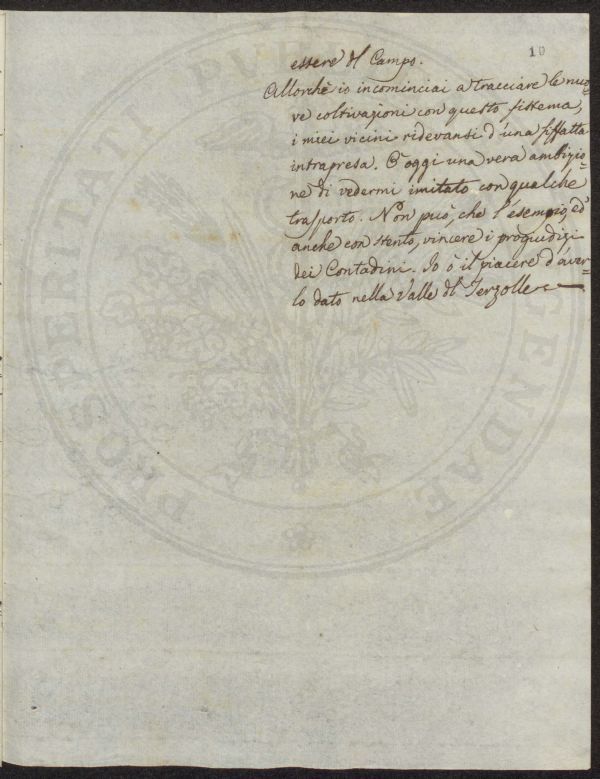 10
essere del Campo.
Allorchè io incominciai a tracciare le nuo=
ve coltivazioni con questo sistema,
i miei vicini ridevansi d'una siffatta
intrapresa. O' oggi una vera ambizio=
ne di vedermi imitato con qualche
trasporto. Non può, che l'esempio, ed
anche con stento, vincere i progiudizi
dei Contadini. Io ò il piacere d'aver=
lo dato nella Valle del Terzolle
PROSPERITATI PUBLICAE AUGENDAE